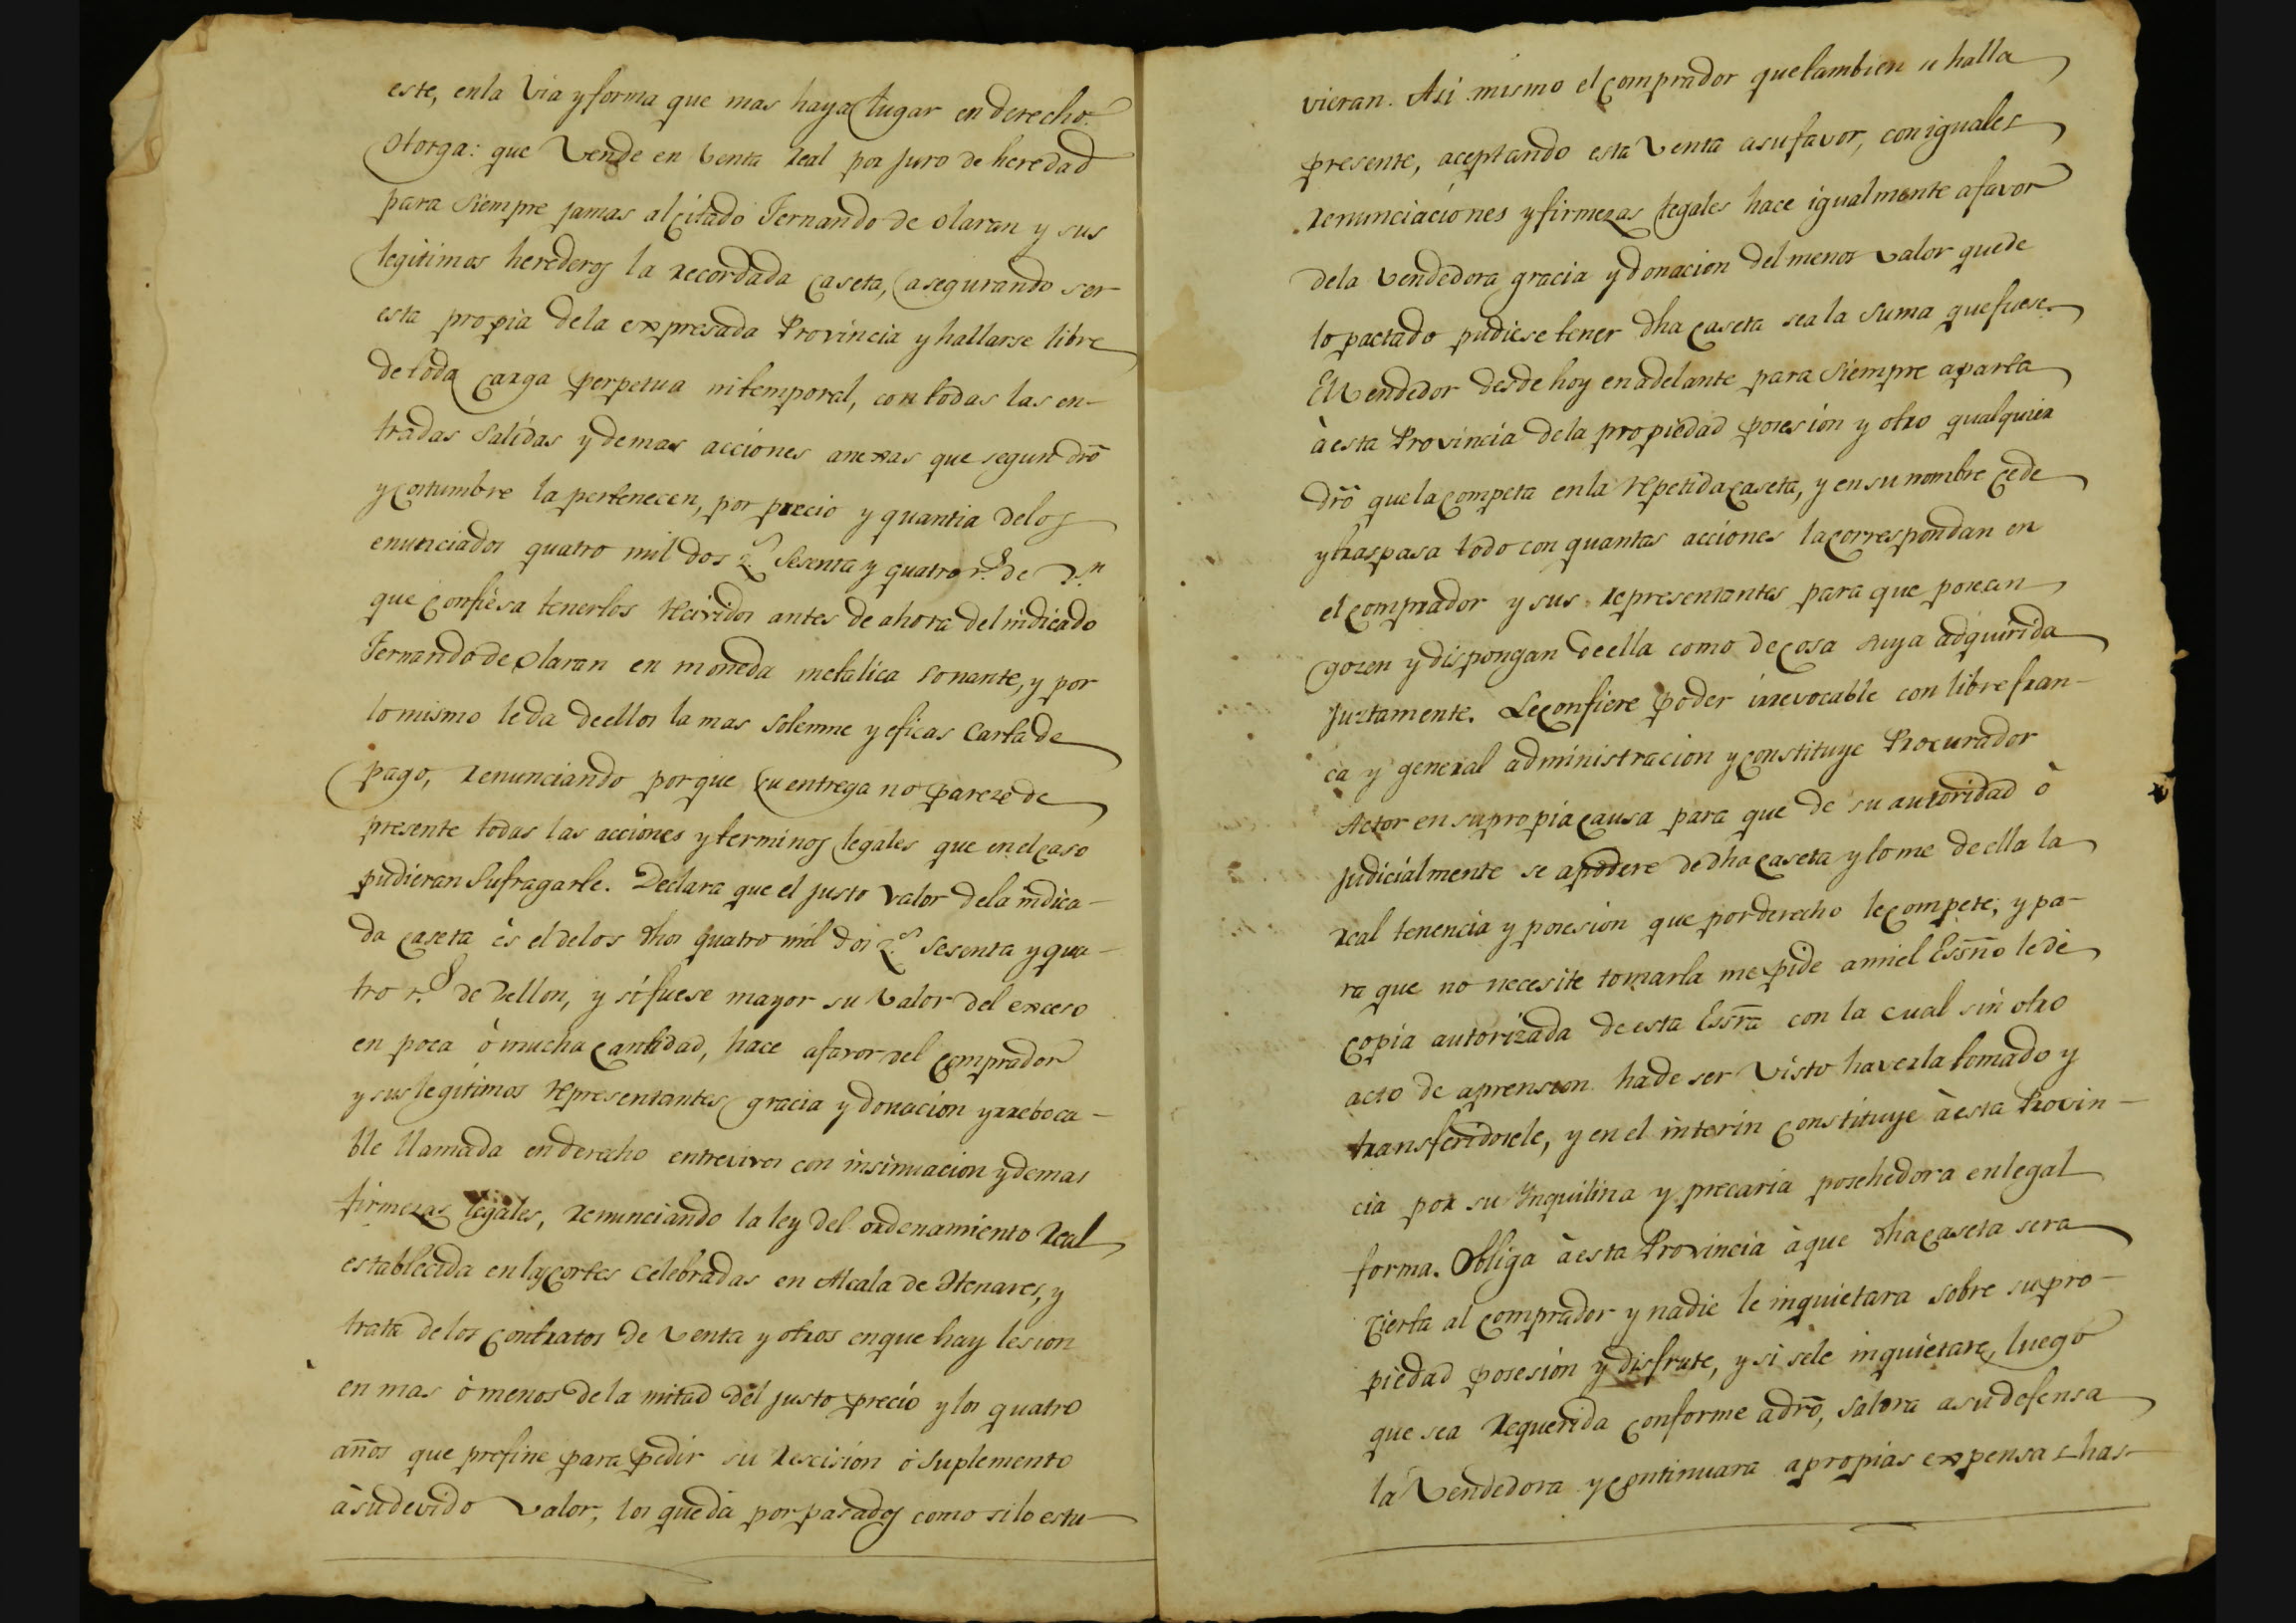 este, en la Via y forma que mas haya lugar en derecho.
Otorga: que Vende en Venta Real por juro de heredad
para Siempre jamas al citado Fernando de Olaran y sus
legitimos herederos la recordada caseta, asegurando ser
esta propia de la expresada Provincia y hallarse libre
de toda carga perpetua ni temporal, con todas las en-
tradas Salidas y demas acciones anexas que segun dro
y costumbre la pertenecen, por precio y quantia de los
enunciados quatro mil dos z.s Sesenta y quatro r.s de v.n
que confiesa tenerlos recividos antes de ahora del indicado
Fernando de Olaran en moneda metalica sonante, y por
lo mismo le da de ellos la mas Solemne y eficas Carta de
pago, renunciando por que su entrega no parece de
presente todas las acciones y terminos legales que en el caso
pudieran Sufragarle. Declara que el justo valor de la indica-
da caseta ès el de los dhos quatro mil dos z.s Sesenta y qua-
tro r.s de Vellon, y si fuese mayor su Valor del exceso
en poca ò mucha cantidad, hace a favor del comprador
y sus legitimos representantes gracia y donacion yrreboca-
ble llamada en derecho entrevivos con insinuacion y demas
firmezas legales, renunciando la ley del ordenamiento Real
establecida en las cortes celebradas en Alcala de Henares, y
trata de los contratos de Venta y otros en que hay lesion
en mas ò menos de la mitad del justo precio y los quatro
años que prefine para pedir su rescision ò Suplemento
à su devido Valor, los que da por pasados como si lo estu-
vieran. Asi mismo el comprador que tambien se halla
presente, aceptando esta Venta a su favor, con iguales
renunciaciones y firmezas legales hace igualmente a favor
de la Vendedora gracia y donacion del menos valor que de
lo pactado pudiese tener dha caseta sea la Suma que fuese.
El Vendedor desde hoy en adelante para Siempre aparta
à esta Provincia de la propiedad posesion y otro qualquier
dro que la competa en la repetida caseta, y en su nombre cede
y traspasa todo con quantas acciones la correspondan en
el comprador y sus representantes para que posean
gozen y dispongan de ella como de cosa suya adquirida
justamente. Le confiere poder irrevocable con libre fran-
ca y general administracion y constituye Procurador
Actor en su propia causa para que de su autoridad ò
judicialmente se apodere de dha caseta y tome de ella la
real tenencia y posesion que por derecho le compete; y pa-
ra que no necesite tomarla me pide a mi el Essño le dè
copia autorizada de esta Essra con la cual sin otro
acto de aprension ha de ser Visto haverla tomado y
transferidosele, y en el interin constituye à esta Provin-
cia por su Ynquilina y precaria posehedora en legal
forma. Obliga à esta Provincia à que dha caseta sera
cierta al comprador y nadie le inquietara sobre su pro-
piedad posesion y disfrute, y si se le inquietare, luego
que sea requerida conforme a dro, Saldra a su defensa
la Vendedora y continuara a propias expensas has-